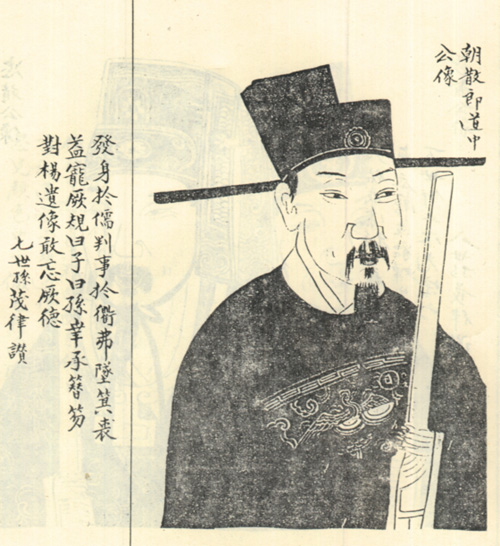 朝散郎道中
公像
發身於儒判事於衢弗墜箕裘
益寵厥規曰子曰孫幸承簪笏
對楊遺像敢忘厥德
七世孫茂律讚